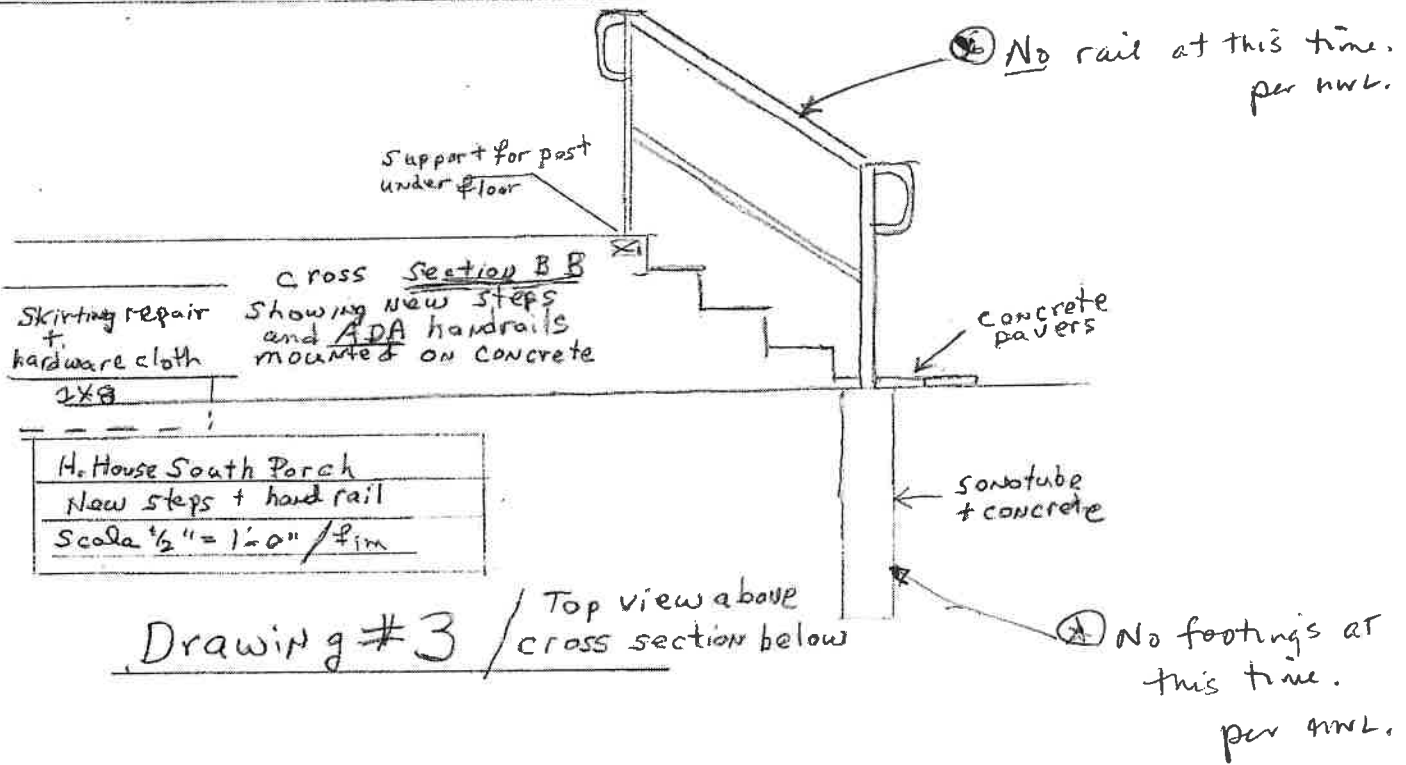 No rail at this time.
per
Support for post
under floor
cross Section B B
Showing New steps
and ADA handrails
mounted on concrete
Skirting repair
+
hardware cloth
2x8
concrete
pavers
H. House South Porch
New steps + hand rail
Scale 1/2" = 1'-0" /
sonotube
+ concrete
Drawing #3 / Top view above
cross section below
No footings at
this time.
per